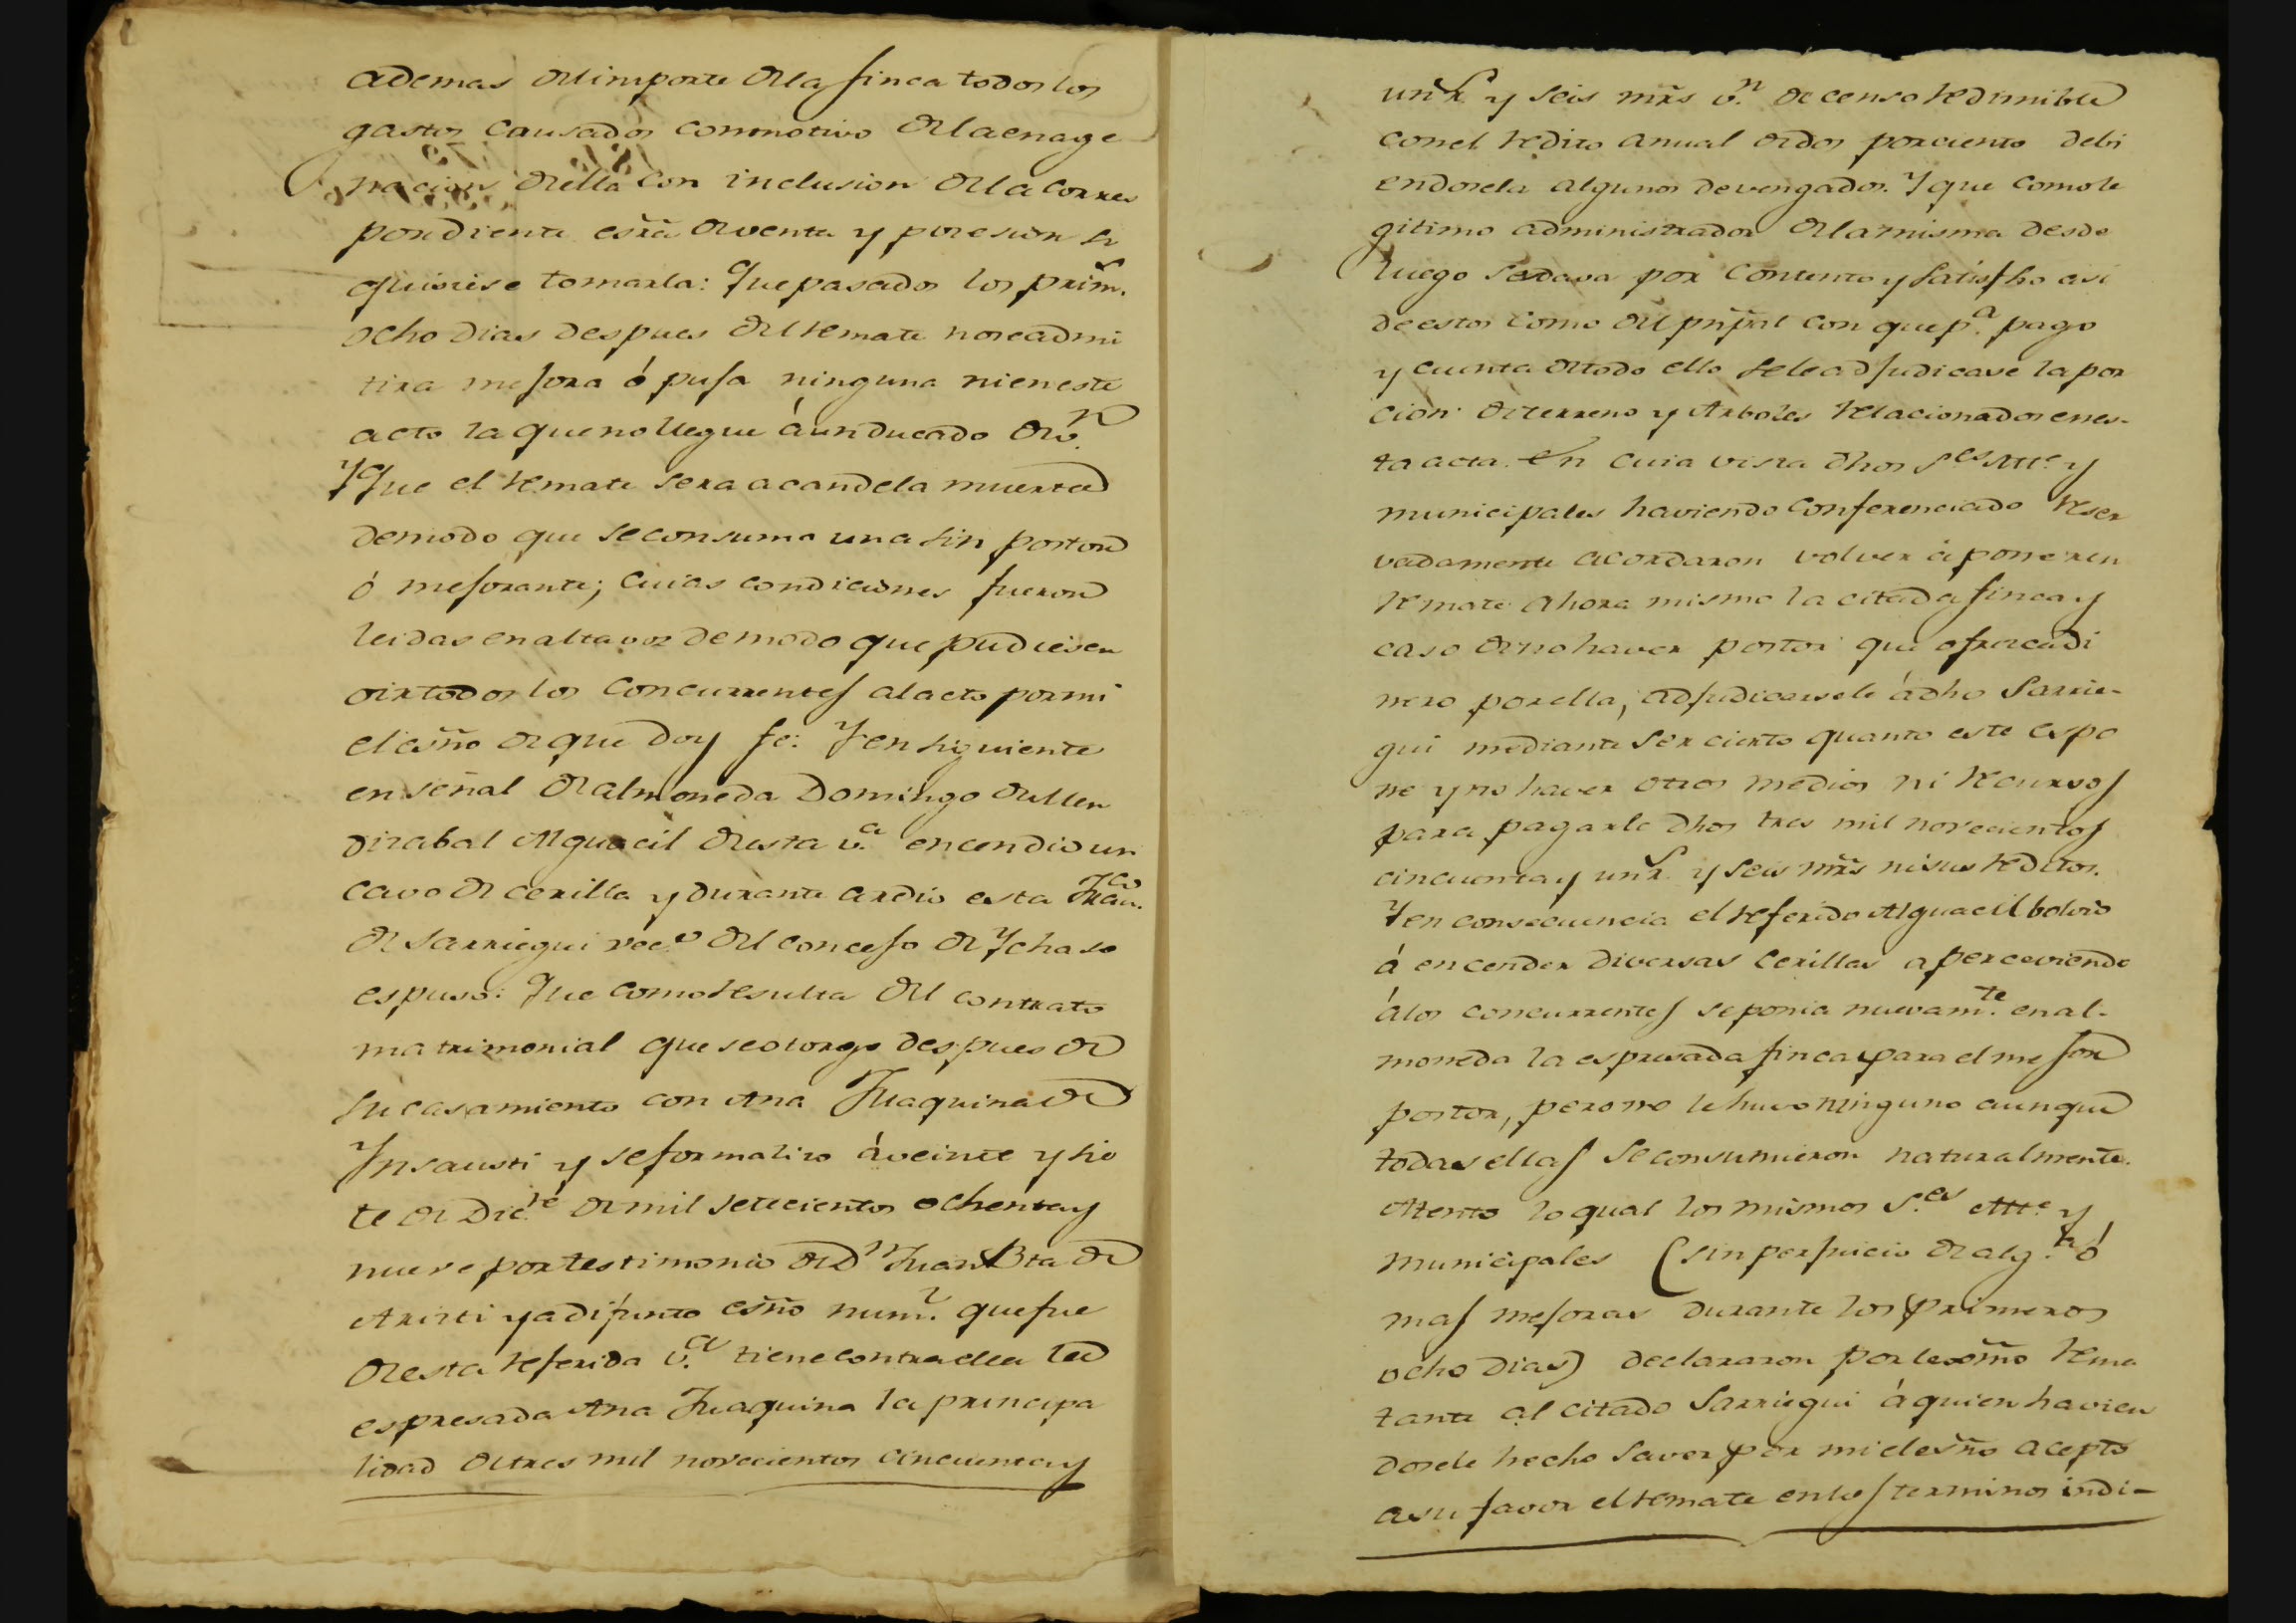 ademas del importe de la finca todos los
gastos causados con motivo de la enage
nacion de ella con inclusion de la corres
pondiente esrã de venta y posesion si
quisiese tomarla: Que pasados los prim.s
ocho dias despues del remate no se admi
tira mejora ó puja ninguna ni en este
acto la que no llegue á un ducado de v.n
Y Que el remate sera a candela muerta
de modo que se consuma una sin postor
ó mejorante; cuias condiciones fueron
leidas en alta voz de modo que pudiesen
oir todos los concurrentes al acto por mi
el esñõ de que doy fe: Y en siguiente
en señal de almoneda Domingo de Men
dizabal Alguacil de esta v.a encendio un
cavo de cerilla y durante ardio esta Fran.co
de Sarriegui vec.o del concejo de Ychaso
espuso: Que como resulta del contrato
matrimonial que se otorgo despues de
su casamiento con Ana Juaquina de
Ynsausti y se formalizo á veinte y sie
te de Dic.re de mil setecientos ochenta y
nueve por testimonio de D.n Juan Bta de
Aristi ya difunto esñõ num.l que fue
de esta referida v.a tiene contra ella la
espresada Ana Juaquina la principa
lidad de tres mil novecientos cincuenta y
un r.s y seis mr̃s v.n de censo redimible
con el redito anual de dos por ciento debi
endosela algunos devengados. Y que como le
gitimo administrador de la misma desde
luego se dava por contento y satisfho asi
de estos como del prñpal con que p.a pago
y cuenta de todo ello se le adjudicase la por
cion de terreno y Arboles relacionados en es-
ta acta. En cuia vista dhos S.es Alt.e y
municipales haviendo conferenciado reser
vadamente acordaron volver á poner en
remate ahora mismo la citada finca y
caso de no haver postor que ofrezca di
nero por ella, adjudicarsele á dho Sarrie-
gui mediante ser cierto quanto este espo
ne y no haver otros medios ni recursos
para pagarle dhos tres mil novecientos
cincuenta y un r.s y seis mr̃s ni sus reditos.
Y en consecuencia el referido Alguacil bolvio
á encender diversas cerillas aperceviendo
á los concurrentes se ponia nuevam.te en al-
moneda la espresada finca para el mejor
postor, pero no le huvo ninguno aunque
todas ellas se consumieron naturalmente.
Atento lo qual los mismos S.es Alt.e y
municipales (sin perjuicio de alg.na ó
mas mejoras durante los primeros
ocho dias) declararon por lexmõ rema
tante al citado Sarriegui á quien havien
dosele hecho saver por mi el esñõ acepto
a su favor el remate en los terminos indi-